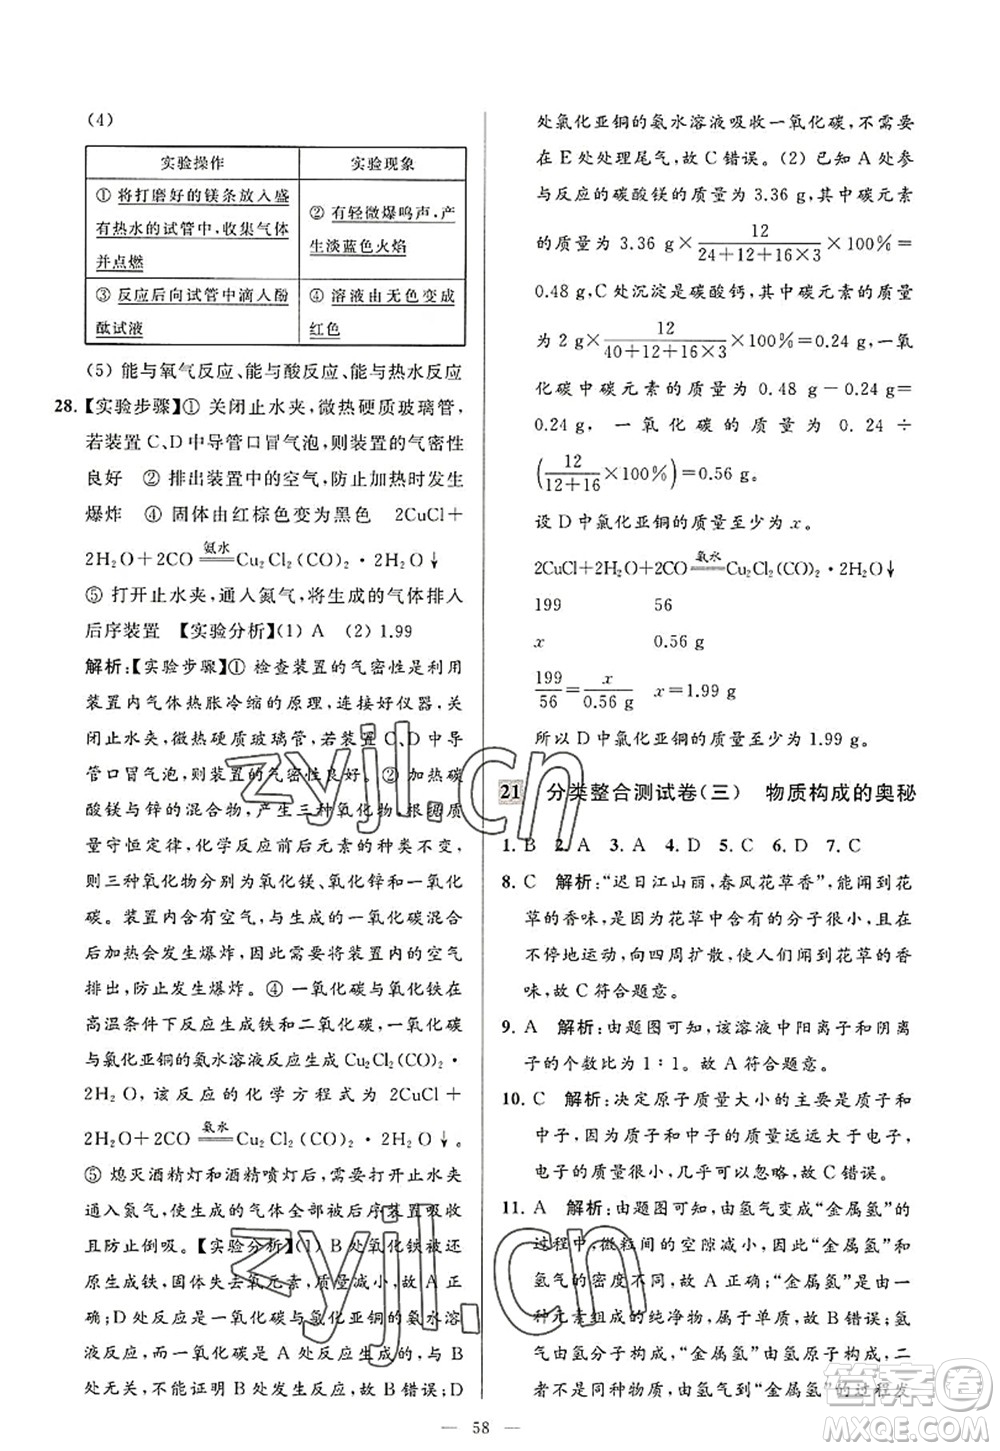 (4)
实验操作 实验现象
① 将打磨好的镁条放入盛
有热水的试管中,收集气体
并点燃
② 有轻微爆鸣声,产
生淡蓝色火焰
③ 反应后向试管中滴入酚
酞试液
④ 溶液由无色变成
红色
(5) 能与氧气反应、能与酸反应、能与热水反应
28.【实验步骤】① 关闭止水夹,微热硬质玻璃管,
若装置 C、D 中导管口冒气泡,则装置的气密性
良好 ② 排出装置中的空气,防止加热时发生
爆炸 ④ 固体由红棕色变为黑色 2CuCl+
2H₂O+2CO 氨水 Cu₂Cl₂(CO)₂·2H₂O↓
⑤ 打开止水夹,通入氮气,将生成的气体排入
后序装置 【实验分析】(1) A (2) 1.99
解析:【实验步骤】① 检查装置的气密性是利用
装置内气体热胀冷缩的原理,装置连接好后,关
闭止水夹,微热硬质玻璃管,若装置 C、D 中导
管口冒气泡,则装置的气密性良好。②
镁与锌的混合物,产生三种氧化物,根据质
量守恒定律,化学反应前后元素的种类不变,
则三种氧化物分别为氧化镁、氧化锌和一氧化
碳。装置内存有空气,与生成的一氧化碳混合
后加热会发生爆炸,因此需要将装置内的空气
排出,防止发生爆炸。④ 一氧化碳与氧化铁在
高温条件下反应生成铁和二氧化碳,一氧化碳
与氯化亚铜的氨水溶液反应生成 Cu₂Cl₂(CO)₂·
2H₂O,该反应的化学方程式为 2CuCl+
2H₂O+2CO 氨水 Cu₂Cl₂(CO)₂·2H₂O↓。
⑤ 熄灭酒精灯和酒精喷灯后,需要打开止水夹
通入氮气,使生成的气体排入后序装置吸收
且防止倒吸。【实验分析】(1) B 处氧化铁被还
原生成铁,固体失去氧元素,质量减小,故 A 正
确;D 处反应是一氧化碳与氯化亚铜的氨水溶
液反应,而一氧化碳是 A 处反应生成的,与 B
处无关,不能证明 B 处发生反应,故 B 错误;D
处氯化亚铜的氨水溶液吸收一氧化碳,不需要
在 E 处处理尾气,故 C 错误。(2) 已知 A 处参
与反应的碳酸镁的质量为 3.36 g,其中碳元素
的质量为 3.36 g×12/(24+12+16×3)×100%=
0.48 g,C 处沉淀是碳酸钙,其中碳元素的质量
为 2 g×12/(40+12+16×3)×100%=0.24 g,一氧
化碳中碳元素的质量为 0.48 g−0.24 g=
0.24 g,一氧化碳的质量为 0.24 ÷
(12/(12+16)×100%)=0.56 g。
设 D 中氯化亚铜的质量至少为 x。
2CuCl+2H₂O+2CO 氨水 Cu₂Cl₂(CO)₂·2H₂O↓
199 56
x 0.56 g
199/56=x/0.56 g x=1.99 g
所以 D 中氯化亚铜的质量至少为 1.99 g。
21 分类整合测试卷(三) 物质构成的奥秘
1. B 2. A 3. A 4. D 5. C 6. D 7. C
8. C 解析:“迟日江山丽,春风花草香”,能闻到花
草的香味,是因为花草中含有的分子很小,且在
不停地运动,向四周扩散,使人们闻到花草的香
味,故 C 符合题意。
9. A 解析:由题图可知,该溶液中阳离子和阴离
子的个数比为 1∶1。故 A 符合题意。
10. C 解析:决定原子质量大小的主要是质子和
中子,因为质子和中子的质量远远大于电子,
电子的质量很小,几乎可以忽略,故 C 错误。
11. A 解析:由题图可知,由氢气变成“金属氢”的
过程中,微粒间的空隙减小,因此“金属氢”和
氢气的密度不同,故 A 正确;“金属氢”是由一
种元素组成的纯净物,属于单质,故 B 错误;氢
气由氢分子构成,“金属氢”由氢原子构成,二
者不是同种物质,由氢气到“金属氢”的过程发
— 58 —
zyjl.cn
zyjl.cn
答案圈
MXQE.COM